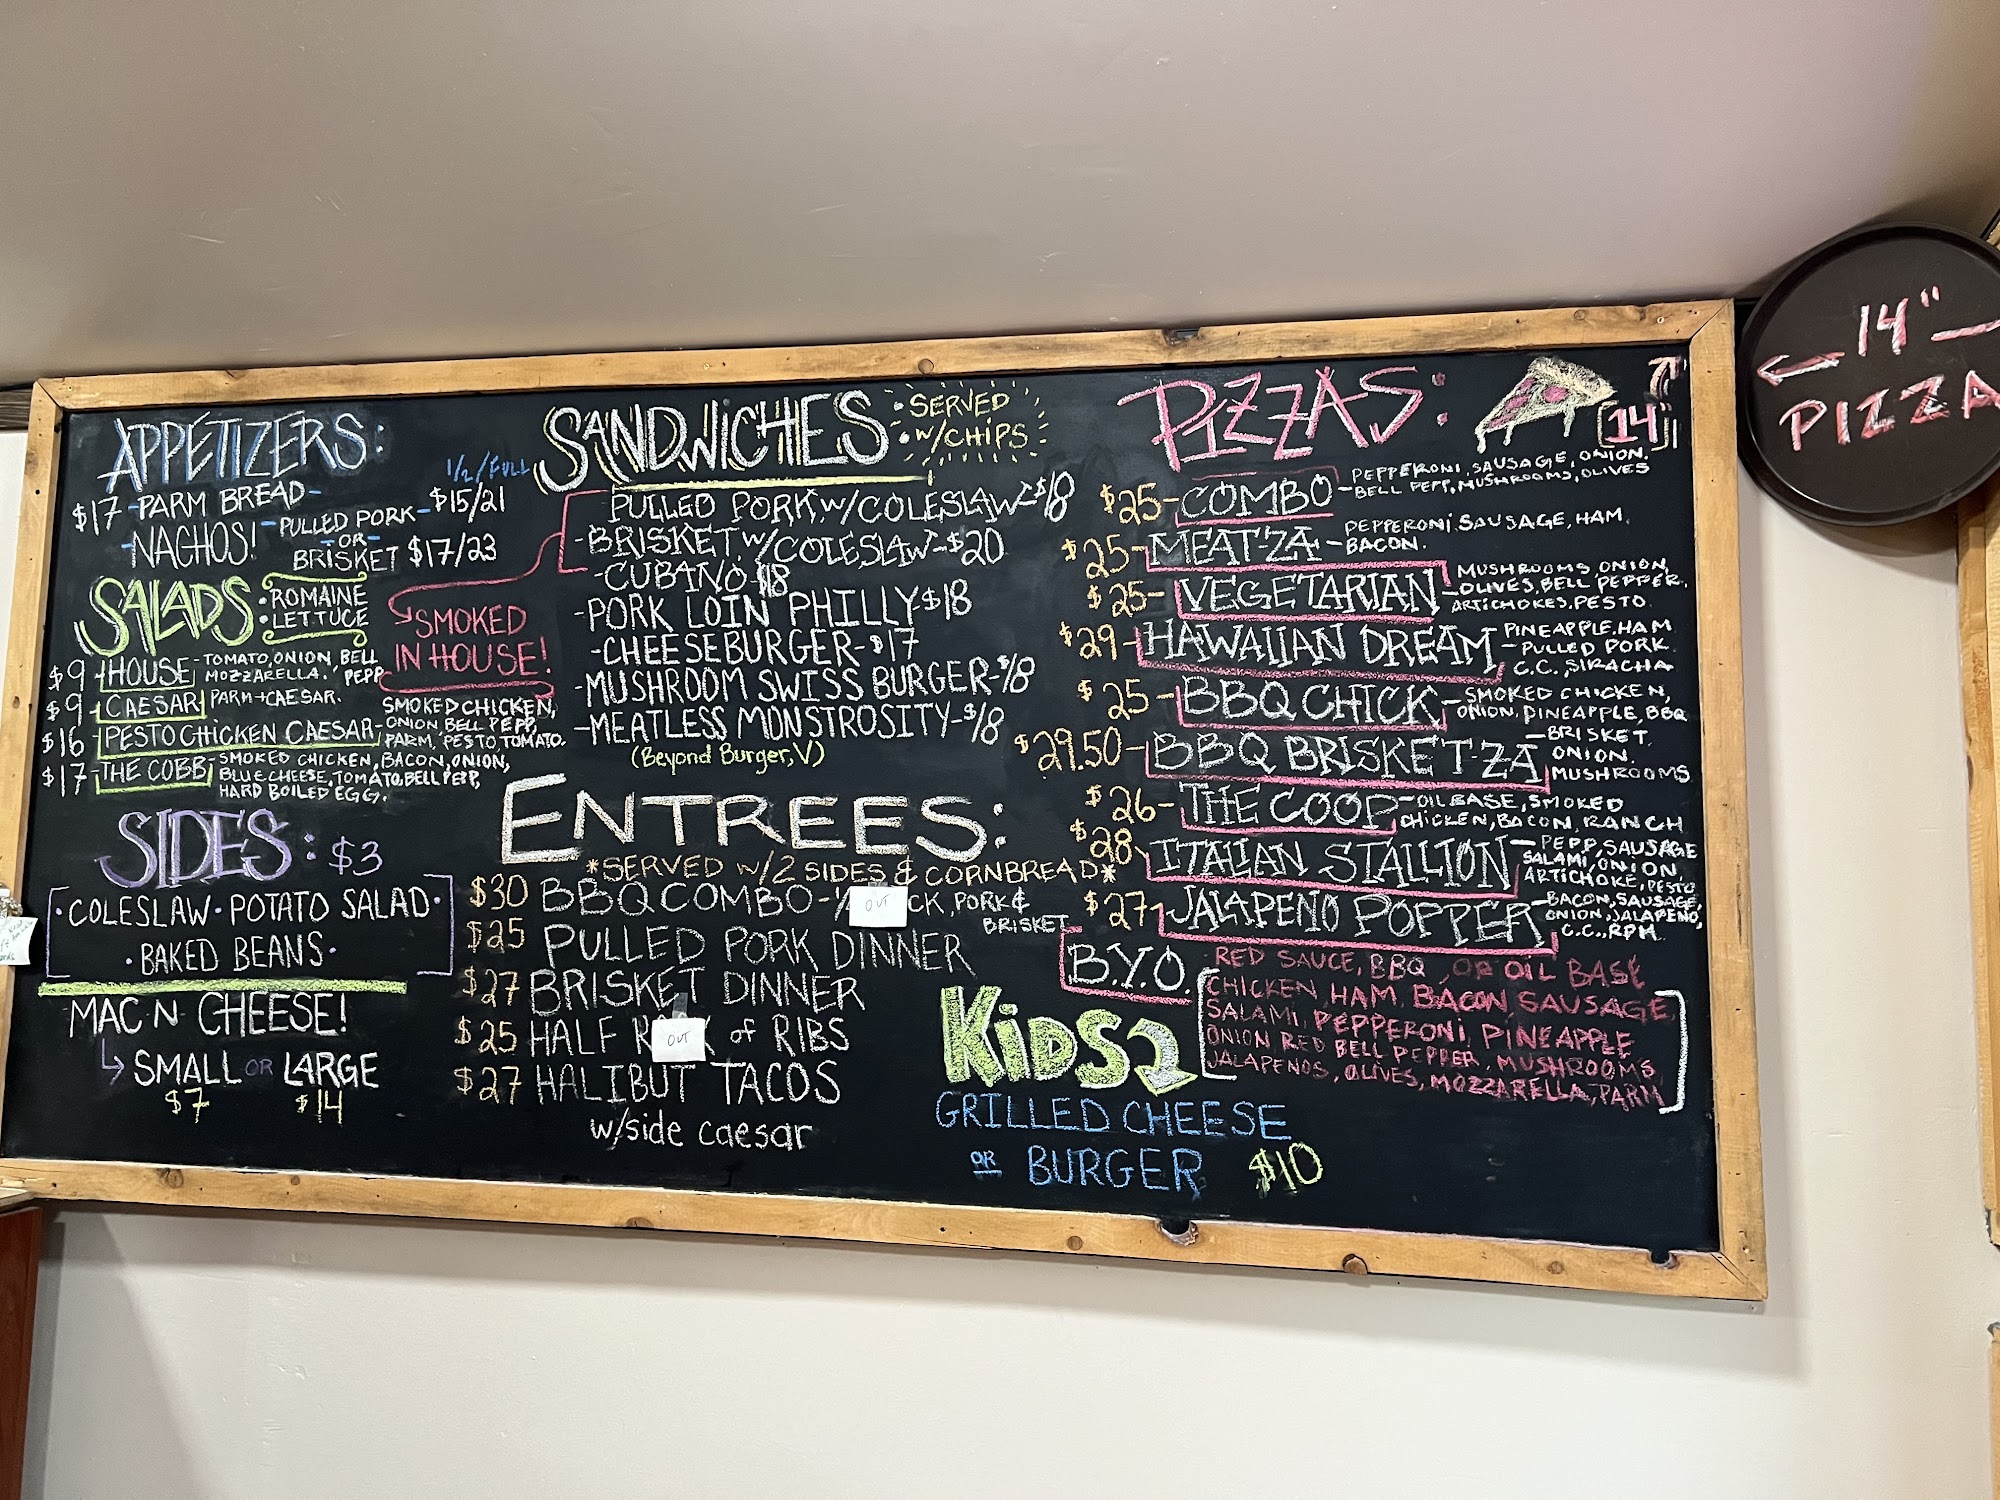 APPETIZERS:
1/2/FULL
$17-PARM BREAD-
-NACHOS! -PULLED PORK- $15/21
-OR-
BRISKET $17/23
SALADS •ROMAINE
•LETTUCE
$9 HOUSE - TOMATO, ONION, BELL
MOZZARELLA. PEPP
$9 - CAESAR PARM + CAESAR.
$16 PESTO CHICKEN CAESAR - SMOKED CHICKEN,
ONION, BELL PEPP,
PARM, PESTO, TOMATO.
$17 - THE COBB - SMOKED CHICKEN, BACON, ONION,
BLUE CHEESE, TOMATO, BELL PEPP,
HARD BOILED EGG.
SIDES: $3
•COLESLAW•POTATO SALAD•
•BAKED BEANS•
MAC N CHEESE!
SMALL OR LARGE
$7 $14
SANDWICHES •SERVED
•W/CHIPS
PULLED PORK, W/COLESLAW-$18
-BRISKET, W/COLESLAW-$20
-CUBANO $18
-PORK LOIN PHILLY $18
-CHEESEBURGER-$17
-MUSHROOM SWISS BURGER-$18
-MEATLESS MONSTROSITY-$18
(Beyond Burger, V)
SMOKED
IN HOUSE!
ENTREES:
*SERVED W/2 SIDES & CORNBREAD*
$30 BBQ COMBO- OUT CK, PORK &
BRISKET
$25 PULLED PORK DINNER
$27 BRISKET DINNER
$25 HALF R OUT K of RIBS
$27 HALIBUT TACOS
w/side caesar
PIZZAS: 14"
$25-COMBO - PEPPERONI, SAUSAGE, ONION.
BELL PEPP, MUSHROOMS, OLIVES
$25-MEATZA - PEPPERONI SAUSAGE, HAM.
BACON.
$25-VEGETARIAN - MUSHROOMS, ONION,
OLIVES, BELL PEPPER.
ARTICHOKES, PESTO.
$29-HAWAIIAN DREAM - PINEAPPLE, HAM
PULLED PORK.
C.C., SIRACHA
$25-BBQ CHICK - SMOKED CHICKEN,
ONION, PINEAPPLE, BBQ
$29.50-BBQ BRISKETZA - BRISKET.
ONION.
MUSHROOMS
$26-THE COOP - OIL BASE, SMOKED
CHICKEN, BACON, RANCH
$28 ITALIAN STALLION - PEPP, SAUSAGE
SALAMI, ONION,
ARTICHOKE, PESTO
$27-JALAPENO POPPER - BACON, SAUSAGE,
ONION, JALAPENO,
C.C., RPM.
B.Y.O. RED SAUCE, BBQ OR OIL BASE
CHICKEN, HAM, BACON, SAUSAGE,
SALAMI, PEPPERONI, PINEAPPLE
ONION RED BELL PEPPER, MUSHROOMS,
JALAPENOS, OLIVES, MOZZARELLA, PARM
KiDS
GRILLED CHEESE
OR BURGER $10
14"
PIZZA